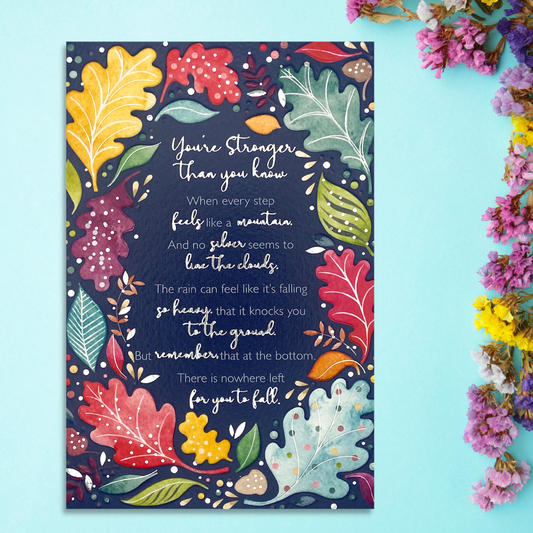 You're Stronger
than you know
When every step
feels like a mountain.
And no silver seems to
line the clouds.
The rain can feel like it's falling
so heavy, that it knocks you
to the ground.
But remember, that at the bottom.
There is nowhere left
for you to fall.